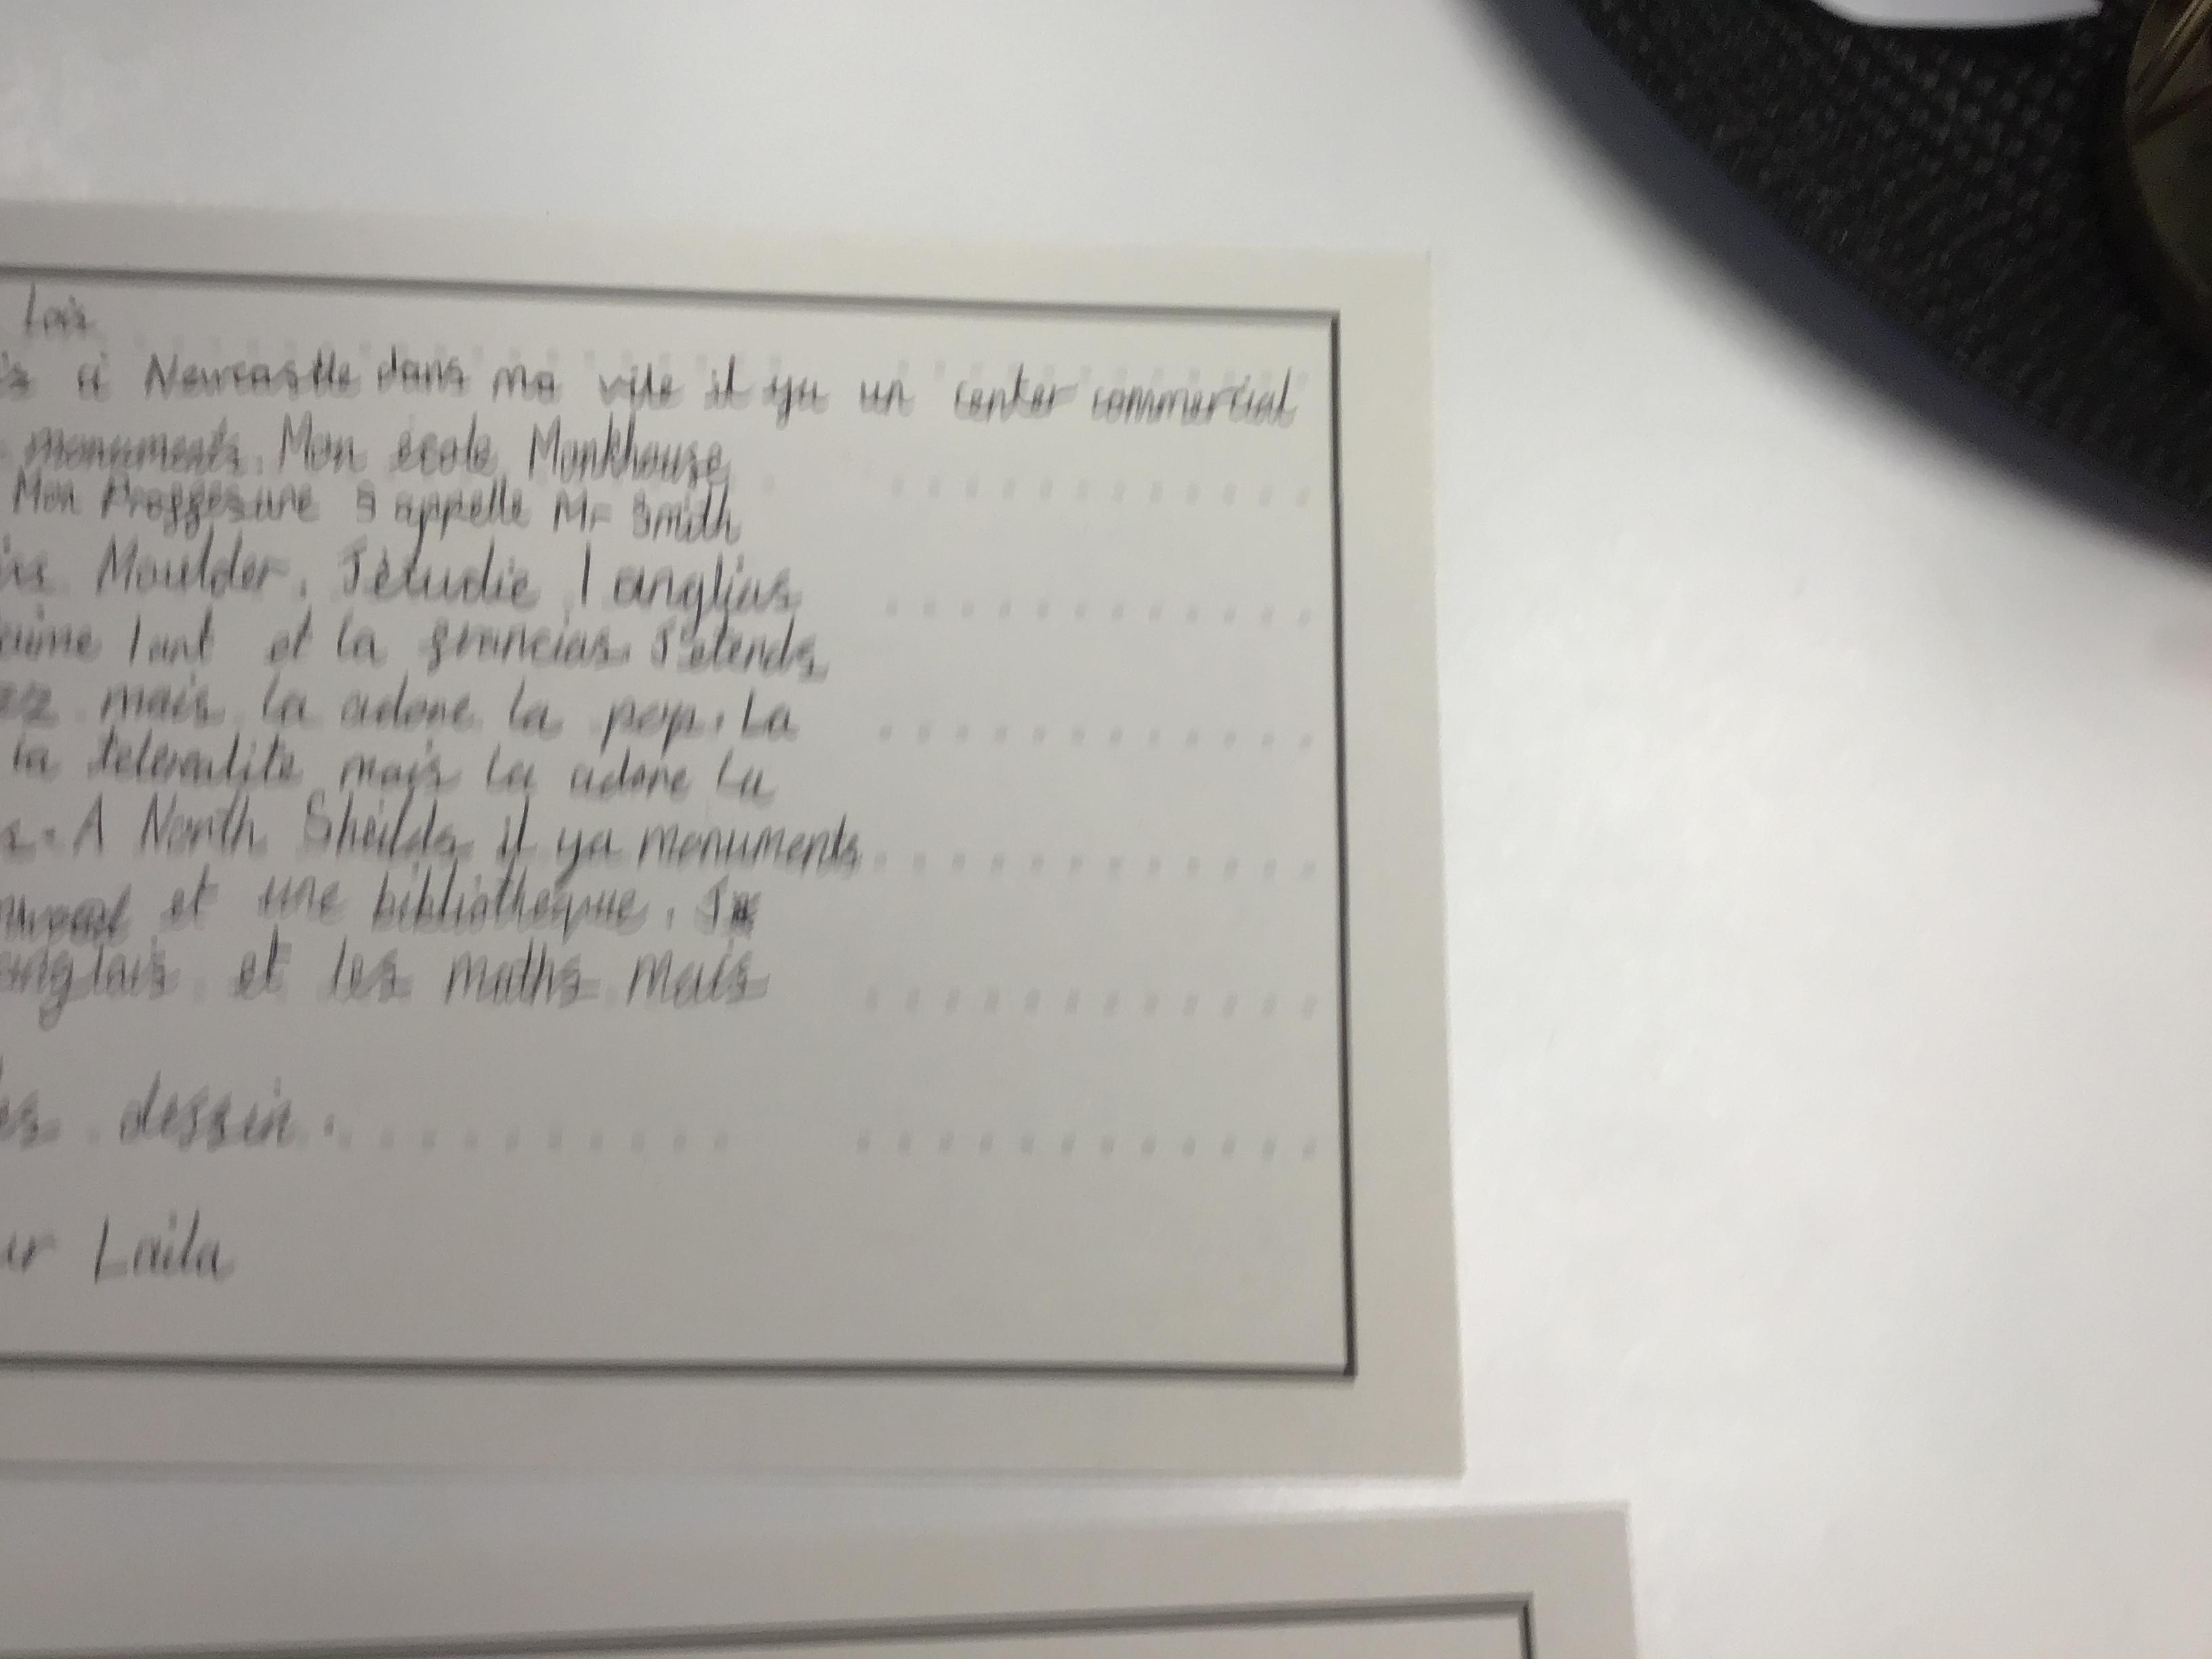 Lois
à Newcastle dans ma vile il ya un center commercial
monuments. Mon école Monkhouse
Mon Proffesure s appelle Mr Smith
Moulder. J'étudie l anglias
aime l art et la francias. J'etends
mais la adore la pop. La
la telerealite mais la adore La
A North Sheilds il ya monuments
et une bibliotheque. J
anglais et les maths mais
dessin.
Laila